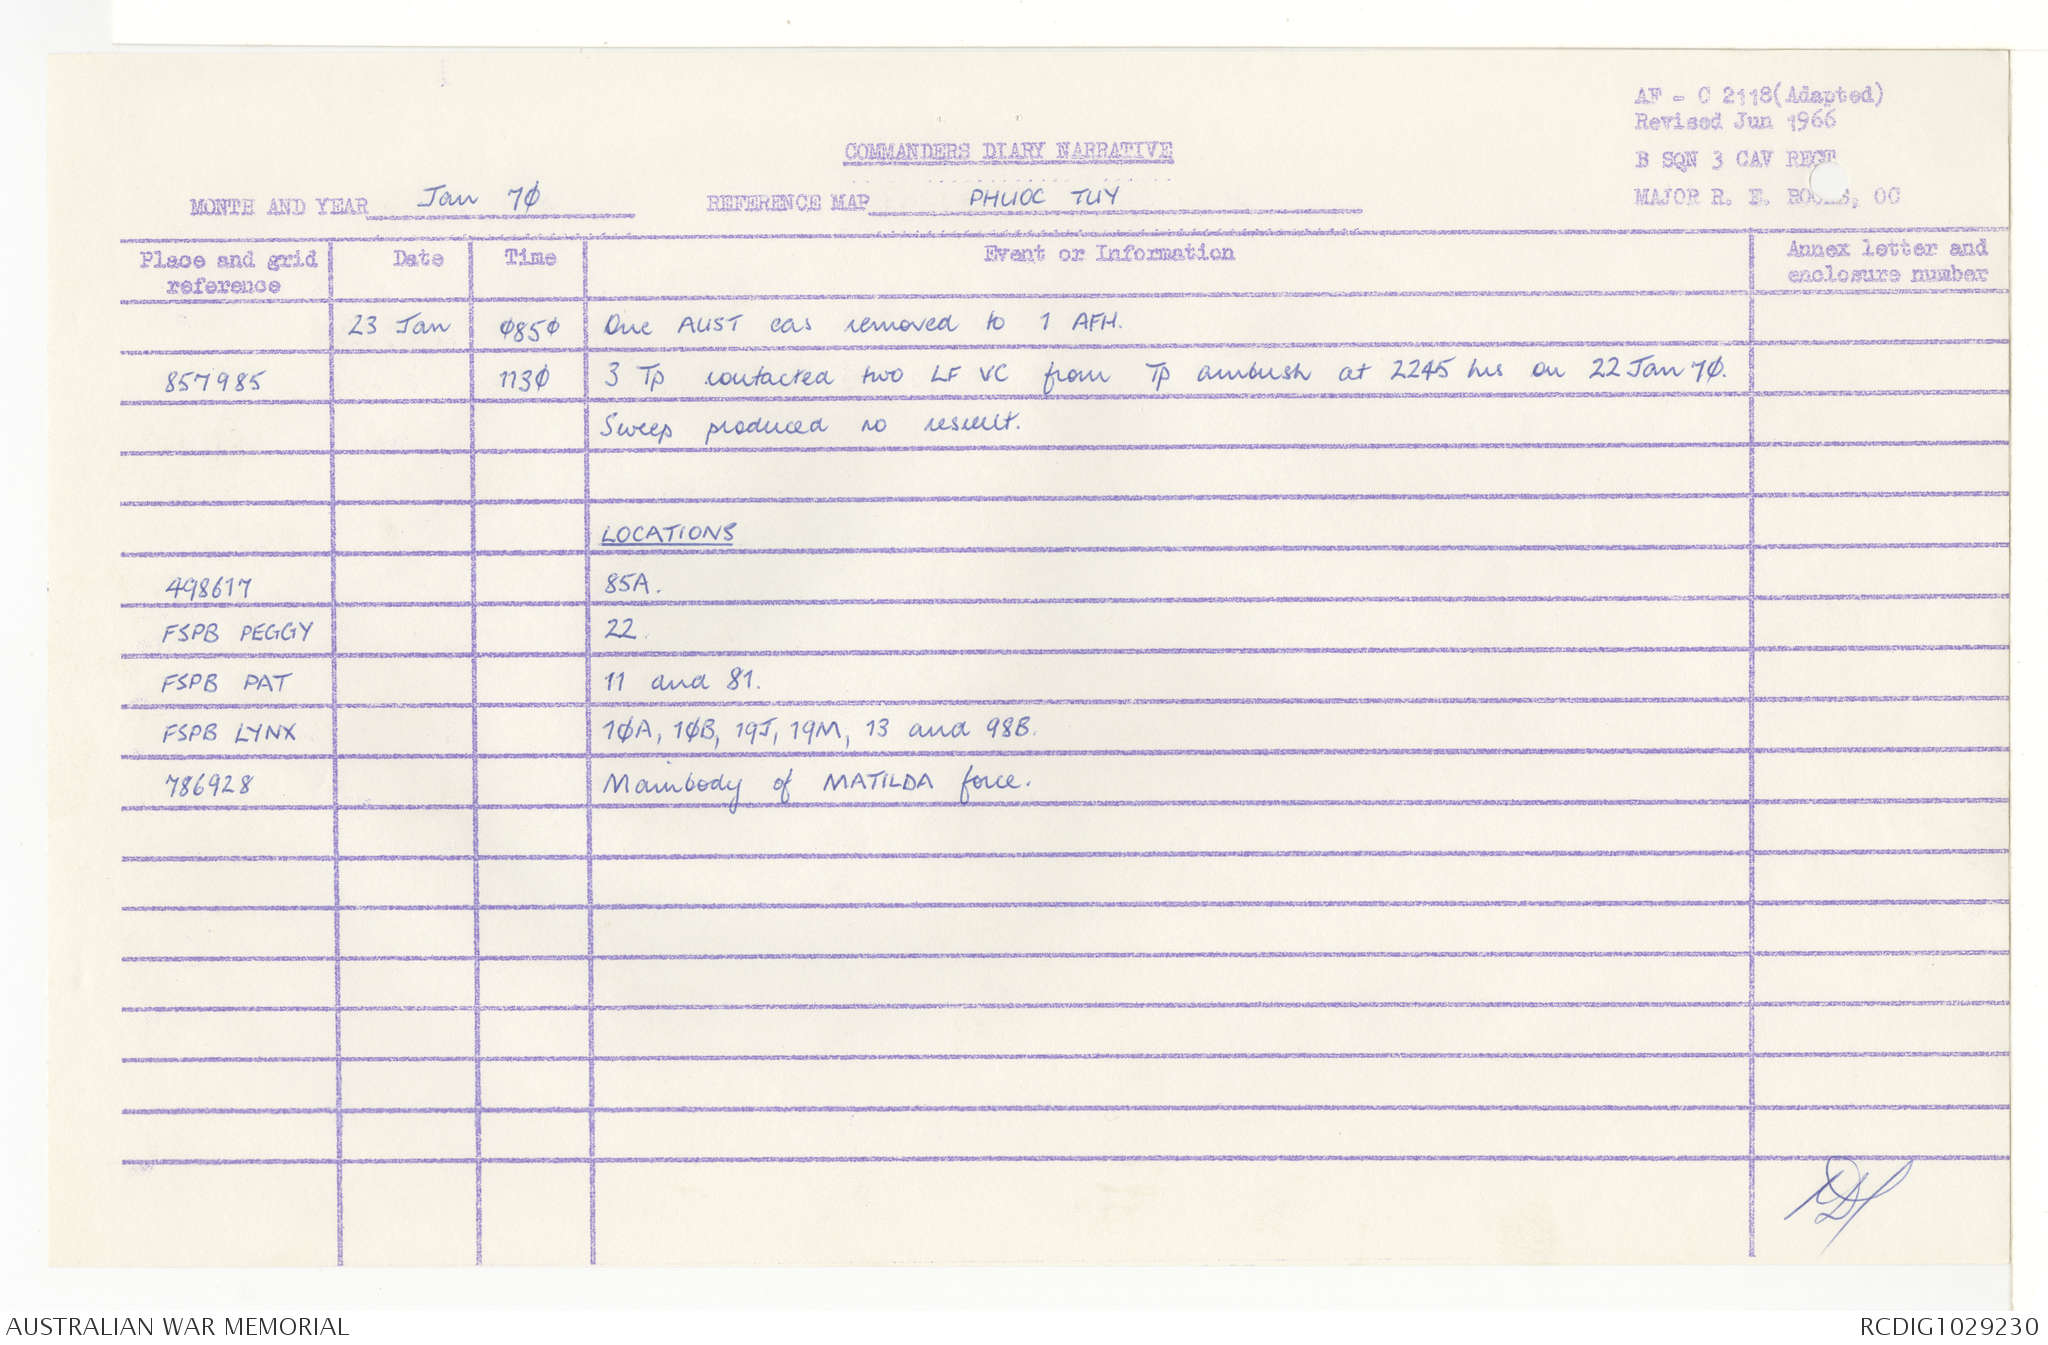 AF - C 2118(Adapted)
Revised Jun 1966
B SQN 3 CAV REGT
MAJOR R. E. OC
COMMANDERS DIARY NARRATIVE
MONTH AND YEAR Jan 7Ø REFERENCE MAP PHUOC TUY
Place and grid reference Date Time Event or Information Annex letter and enclosure number
23 Jan Ø85Ø One AUST cas removed to 1 AFH.
857985 113Ø 3 Tp contacted two LF VC from Tp ambush at 2245 hrs on 22 Jan 7Ø.
Sweep produced no result.
LOCATIONS
498617 85A.
FSPB PEGGY 22.
FSPB PAT 11 and 81.
FSPB LYNX 1ØA, 1ØB, 19J, 19M, 13 and 98B.
786928 Mainbody of MATILDA force.
AUSTRALIAN WAR MEMORIAL RCDIG1029230